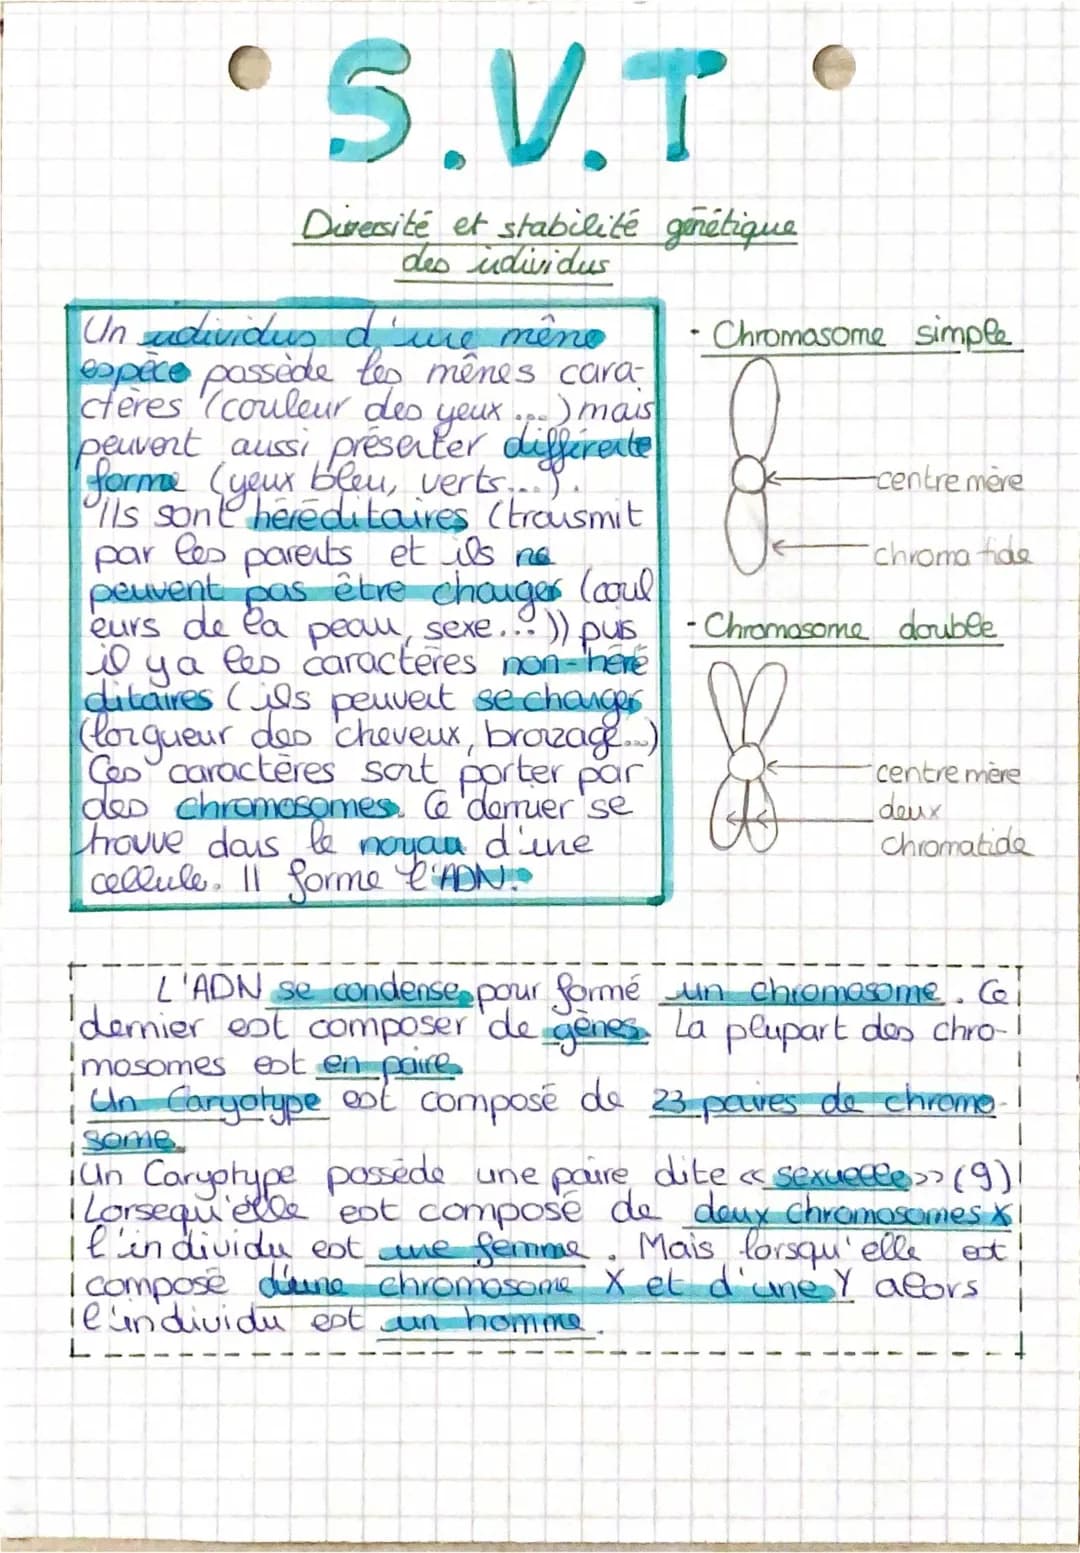 S.V.T
Diversité et stabilité génétique
des individus
Un individus d'une même
espèce possède les mêmes cara-
ctères (couleur des yeux ...) mais
peuvent aussi présenter différente
forme (yeux bleu, verts...).
Ils sont héréditaires (transmit
par les parents et ils ne
peuvent pas être changer (coul
eurs de la peau, sexe...)) puis
il y a les caractères non-héré
ditaires (ils peuvent se changer
(longueur des cheveux, bronzage...)
Ces caractères sont porter par
des chromosomes. Ce dernier se
trouve dans le noyau d'une
cellule. Il forme l'ADN.
- Chromasome simple
centre mère
chromatide
- Chromosome double
centre mère
deux
chromatide
L'ADN se condense pour formé un chromosome. Ce
dernier est composer de gènes. La plupart des chro-
mosomes est en paire.
Un Caryotype est composé de 23 paires de chromo-
some.
Un Caryotype possède une paire dite « sexuelle » (9)
Lorsequ'elle est composé de deux chromosomes X
l'individu est une femme. Mais lorsqu'elle est
composé d'une chromosome X et d'une Y alors
l'individu est un homme.